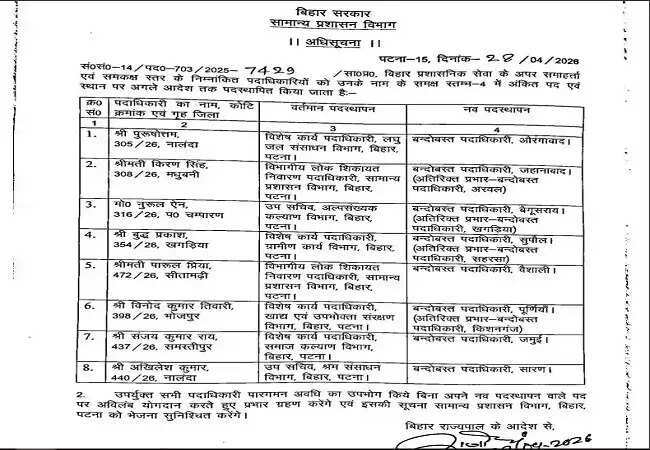 बिहार सरकार
सामान्य प्रशासन विभाग
।। अधिसूचना ।।
पटना-15, दिनांक- 28 /04/2026
सं०सं०-14/पद०-703/2025- 7429 /सा०प्र०, बिहार प्रशासनिक सेवा के अपर समाहर्त्ता
एवं समकक्ष स्तर के निम्नांकित पदाधिकारियों को उनके नाम के समक्ष स्तम्भ-4 में अंकित पद एवं
स्थान पर अगले आदेश तक पदस्थापित किया जाता है:-
क्र० सं० पदाधिकारी का नाम, कोटि क्रमांक एवं गृह जिला वर्तमान पदस्थापन नव पदस्थापन
1 2 3 4
1. श्री पुरूषोत्तम, विशेष कार्य पदाधिकारी, लघु बन्दोबस्त पदाधिकारी, औरंगाबाद।
305/26, नालंदा जल संसाधन विभाग, बिहार,
पटना।
2. श्रीमती किरण सिंह, विभागीय लोक शिकायत बन्दोबस्त पदाधिकारी, जहानाबाद।
308/26, मधुबनी निवारण पदाधिकारी, सामान्य (अतिरिक्त प्रभार-बन्दोबस्त
प्रशासन विभाग, बिहार, पदाधिकारी, अरवल)
पटना।
3. मो० नुरूल ऐन, उप सचिव, अल्पसंख्यक बन्दोबस्त पदाधिकारी, बेगूसराय।
316/26, प० चम्पारण कल्याण विभाग, बिहार, (अतिरिक्त प्रभार-बन्दोबस्त
पटना। पदाधिकारी, खगड़िया)
4. श्री बुद्ध प्रकाश, विशेष कार्य पदाधिकारी, बन्दोबस्त पदाधिकारी, सुपौल।
354/26, खगड़िया ग्रामीण कार्य विभाग, बिहार, (अतिरिक्त प्रभार-बन्दोबस्त
पटना। पदाधिकारी, सहरसा)
5. श्रीमती पारूल प्रिया, विभागीय लोक शिकायत बन्दोबस्त पदाधिकारी, वैशाली।
472/26, सीतामढ़ी निवारण पदाधिकारी, सामान्य
प्रशासन विभाग, बिहार,
पटना।
6. श्री विनोद कुमार तिवारी, विशेष कार्य पदाधिकारी, बन्दोबस्त पदाधिकारी, पूर्णियाँ।
398/26, भोजपुर खाद्य एवं उपभोक्ता संरक्षण (अतिरिक्त प्रभार-बन्दोबस्त
विभाग, बिहार, पटना। पदाधिकारी, किशनगंज)
7. श्री संजय कुमार राय, विशेष कार्य पदाधिकारी, बन्दोबस्त पदाधिकारी, जमुई।
437/26, समस्तीपुर समाज कल्याण विभाग,
बिहार, पटना।
8. श्री अखिलेश कुमार, उप सचिव, श्रम संसाधन बन्दोबस्त पदाधिकारी, सारण।
440/26, नालंदा विभाग, बिहार, पटना।
2. उपर्युक्त सभी पदाधिकारी पारगमन अवधि का उपभोग किये बिना अपने नव पदस्थापन वाले पद
पर अविलंब योगदान करते हुए प्रभार ग्रहण करेंगे एवं इसकी सूचना सामान्य प्रशासन विभाग, बिहार,
पटना को भेजना सुनिश्चित करेंगे।
बिहार राज्यपाल के आदेश से,
2026